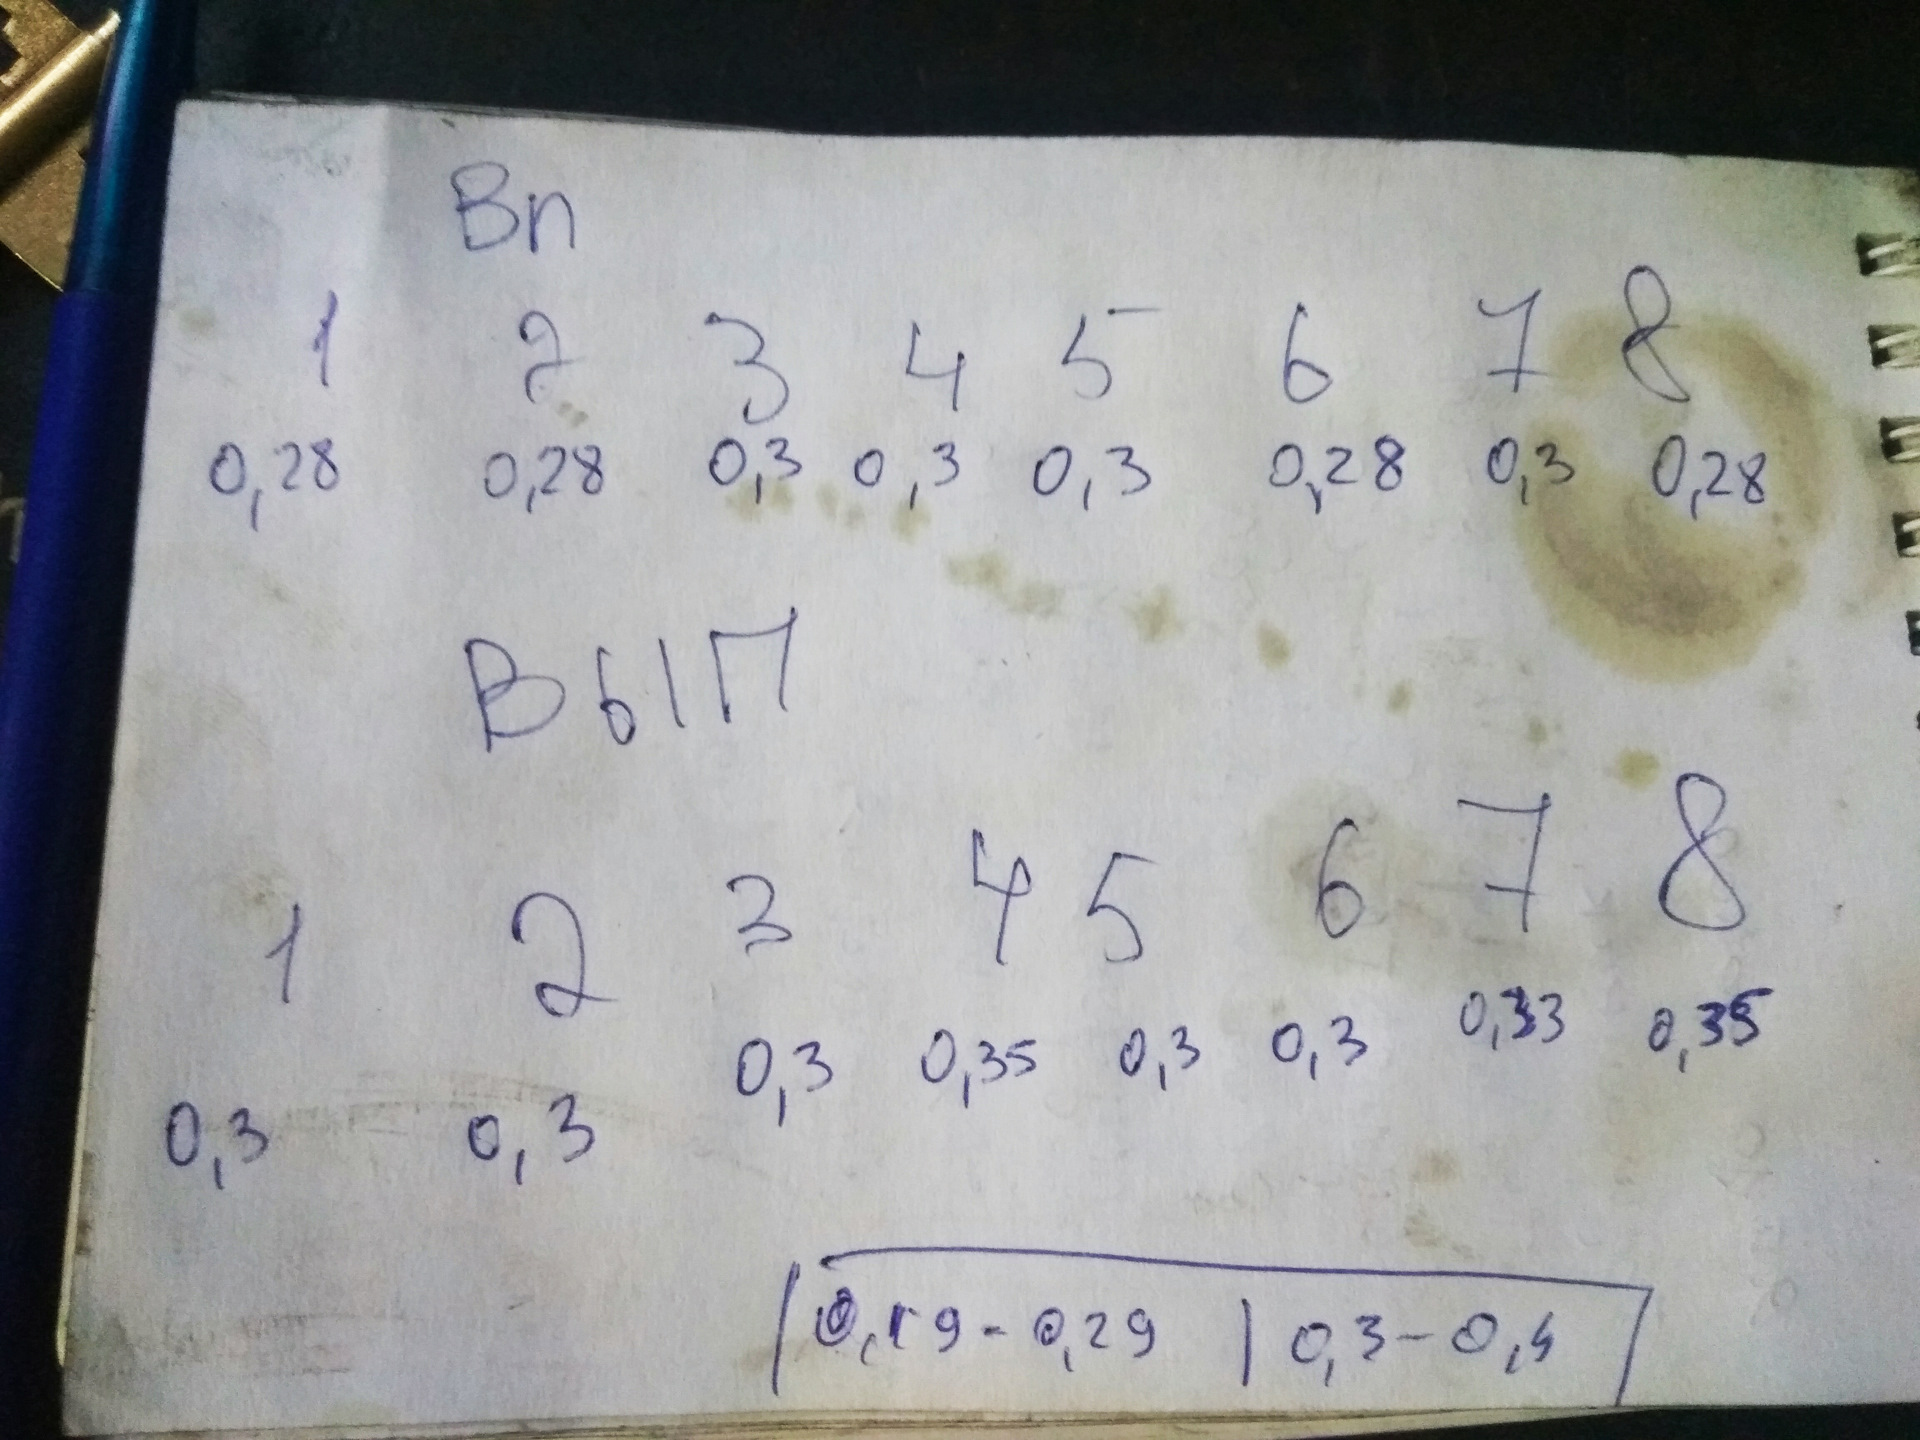 Вп
1 2 3 4 5 6 7 8
0,28 0,28 0,3 0,3 0,3 0,28 0,3 0,28
ВЫП
1 2 3 4 5 6 7 8
0,3 0,3 0,3 0,35 0,3 0,3 0,33 0,35
0,19-0,29 | 0,3-0,4